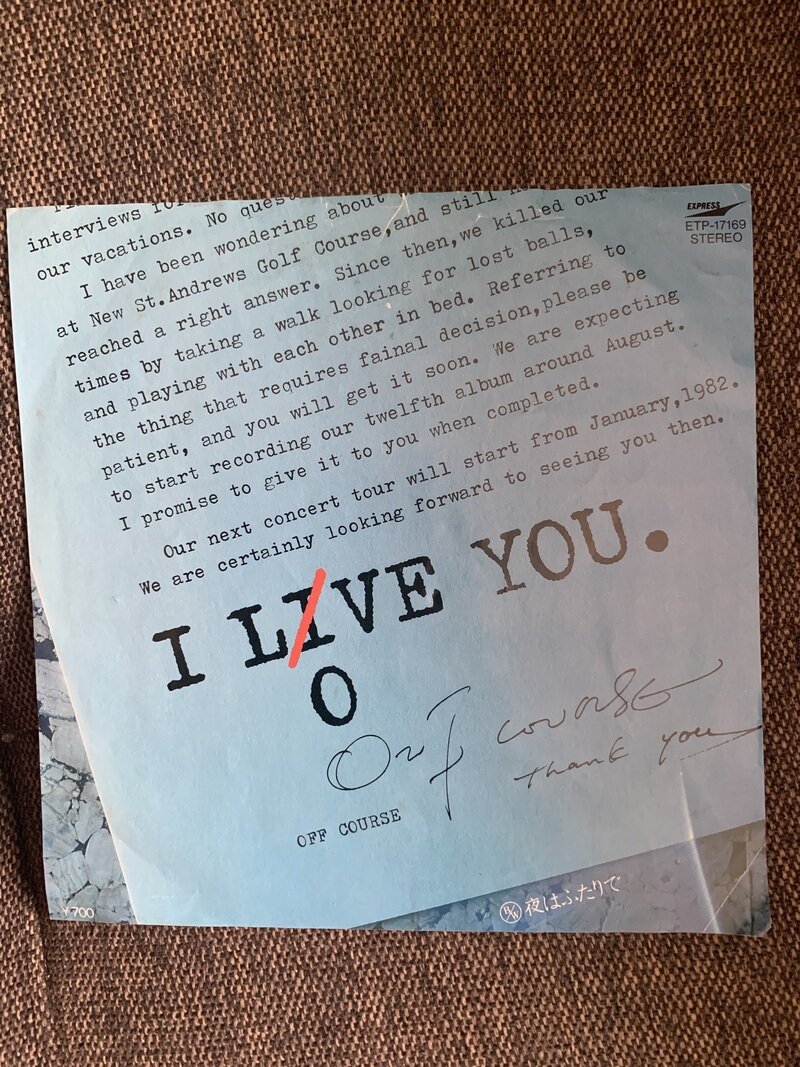 interviews
our vacations. No
I have been wondering about
at New St.Andrews Golf Course,and still
reached a right answer. Since then,we killed our
times by taking a walk looking for lost balls,
and playing with each other in bed. Referring to
the thing that requires fainal decision,please be
patient, and you will get it soon. We are expecting
to start recording our twelfth album around August.
I promise to give it to you when completed.
Our next concert tour will start from January,1982.
We are certainly looking forward to seeing you then.
I LIVE YOU.
O
Off course
Thank you
OFF COURSE
EXPRESS
ETP-17169
STEREO
B/W 夜はふたりで
¥700